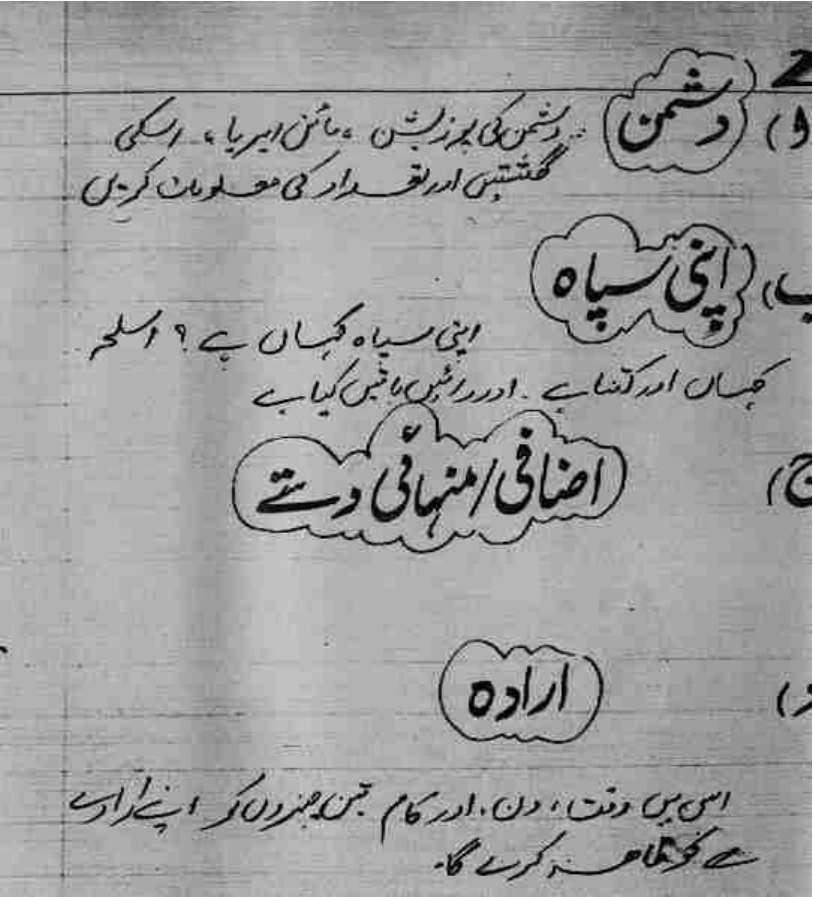 2
ا) دشمن :۔ دشمن کی پوزیشن ، مائن ایریا ، اسکی
گشتیں اور تعداد کی معلومات کریں
ب) اپنی سپاہ
اپنی سپاہ کہاں ہے ؟ اسلحہ
کہاں اور کتنا ہے ۔ اور دائیں بائیں کیا ہے
ج) اضافی/منہائی دستے
د) ارادہ
اس میں وقت ، دن ، اور کام تین چیزوں کو اپنے ارادے
سے کرے گا۔